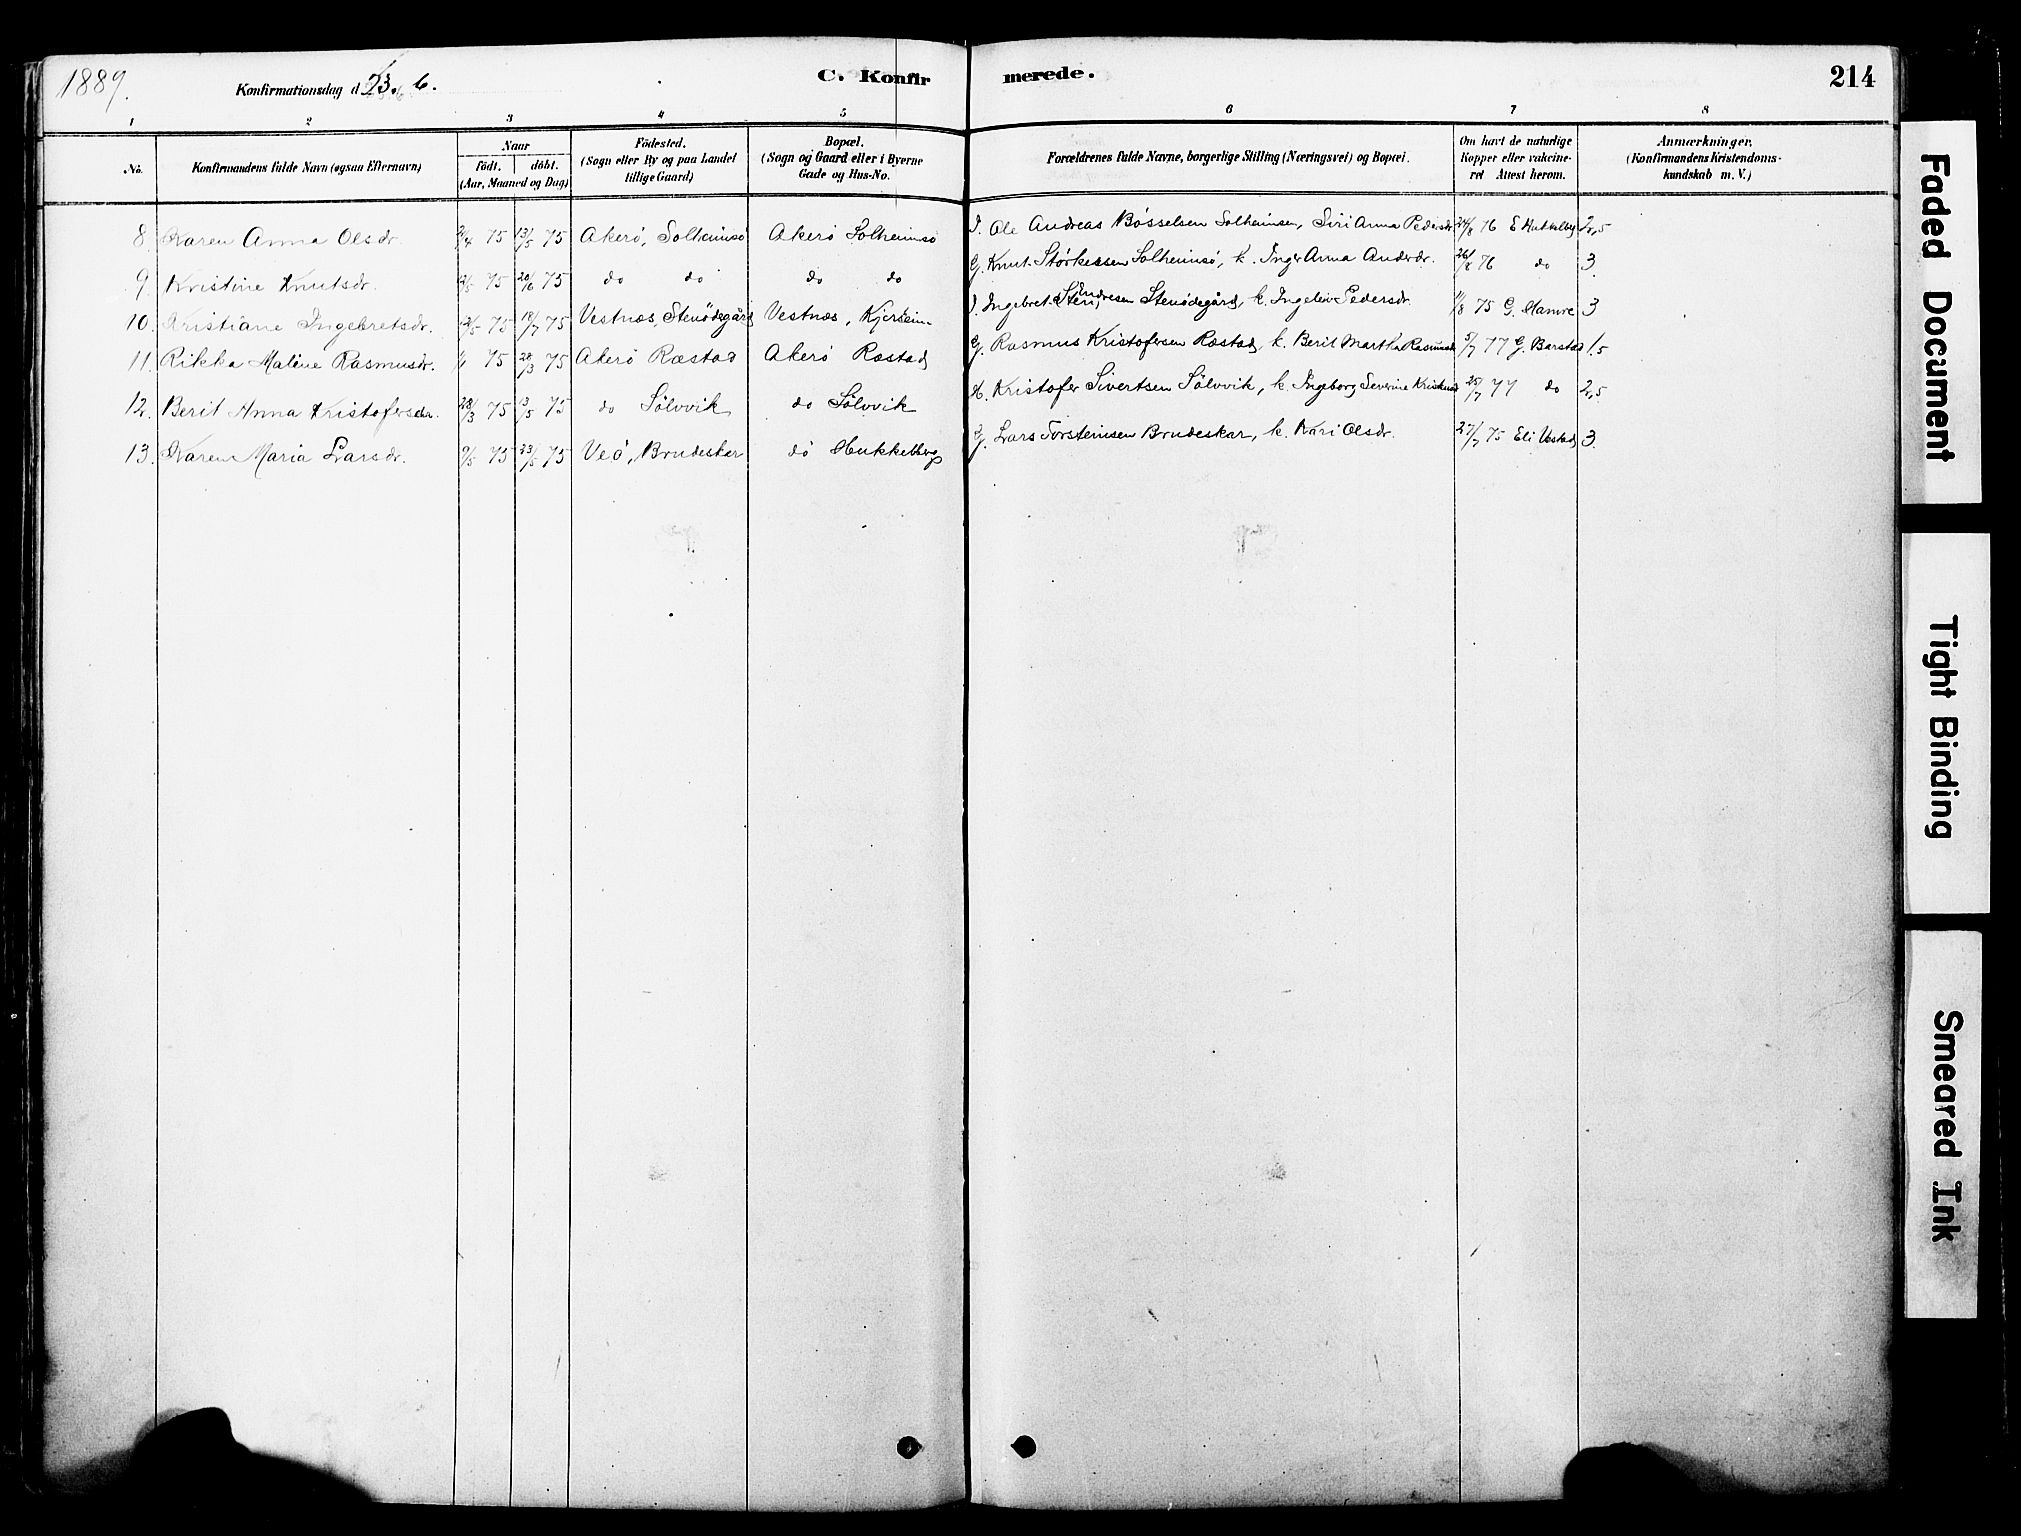 1889.
Konfirmationsdag d 23. 6.
C. Konfirmerede.
214
1 2 3 4 5 6 7 8
No.
Konfirmandens fulde Navn (ogsaa Efternavn)
Naar
födt. döbt.
(Aar, Maaned og Dag)
Födested.
(Sogn eller By og paa Landet
tillige Gaard)
Bopæl.
(Sogn og Gaard eller i Byerne
Gade og Hus-No.
Forældrenes fulde Navne, borgerlige Stilling (Næringsvei) og Bopæl.
Om havt de naturlige
Kopper eller vakcine-
ret Attest herom.
Anmærkninger.
(Konfirmandens Kristendoms-
kundskab m. V.)
8. Karen Anna Olsdr. 75 13/5 75 Akerö, Solheimsö Akerö Solheimsö I. Ole Andreas Bösselsen Solheimsen, Siri Anna Pedersdr 24/8 76 E Hukkelbg 2,5
9. Kristine Knutsdr. 12/5 75 20/6 75 do do do do G. Knut Störkersen Solheimsö, k. Inger Anna Andersdr. 26/8 76 do 3
10. Kristiane Ingebretsdr. 12/5 75 18/7 75 Vestnæs, Stenödegård Vestnæs, Kjersem I. Ingebret Sten Endresen Stenödegård, k. Ingeleiv Pedersdr. 11/8 75 G. Hamre 3
11. Rikka Maline Rasmusdr. 75 28/3 75 Akerö Ræstad Akerö Ræstad G. Rasmus Kristofersen Ræstad, k. Berit Martha Rasmusdr 5/7 77 G. Barstad 1,5
12. Berit Anna Kristofersdr. 28/3 75 13/5 75 do Sölvvik do Sölvvik H. Kristofer Sivertsen Sölvvik, k Ingeborg Severine 25/7 77 do 2,5
13. Karen Maria Larsdr. 9/5 75 23/5 75 Veö, Brudeskar do Hukkelberg G. Lars Torsteinsen Brudeskar, k. Kari Olsdr. 27/7 75 Eli Vestad 3
Faded Document
Tight Binding
Smeared Ink